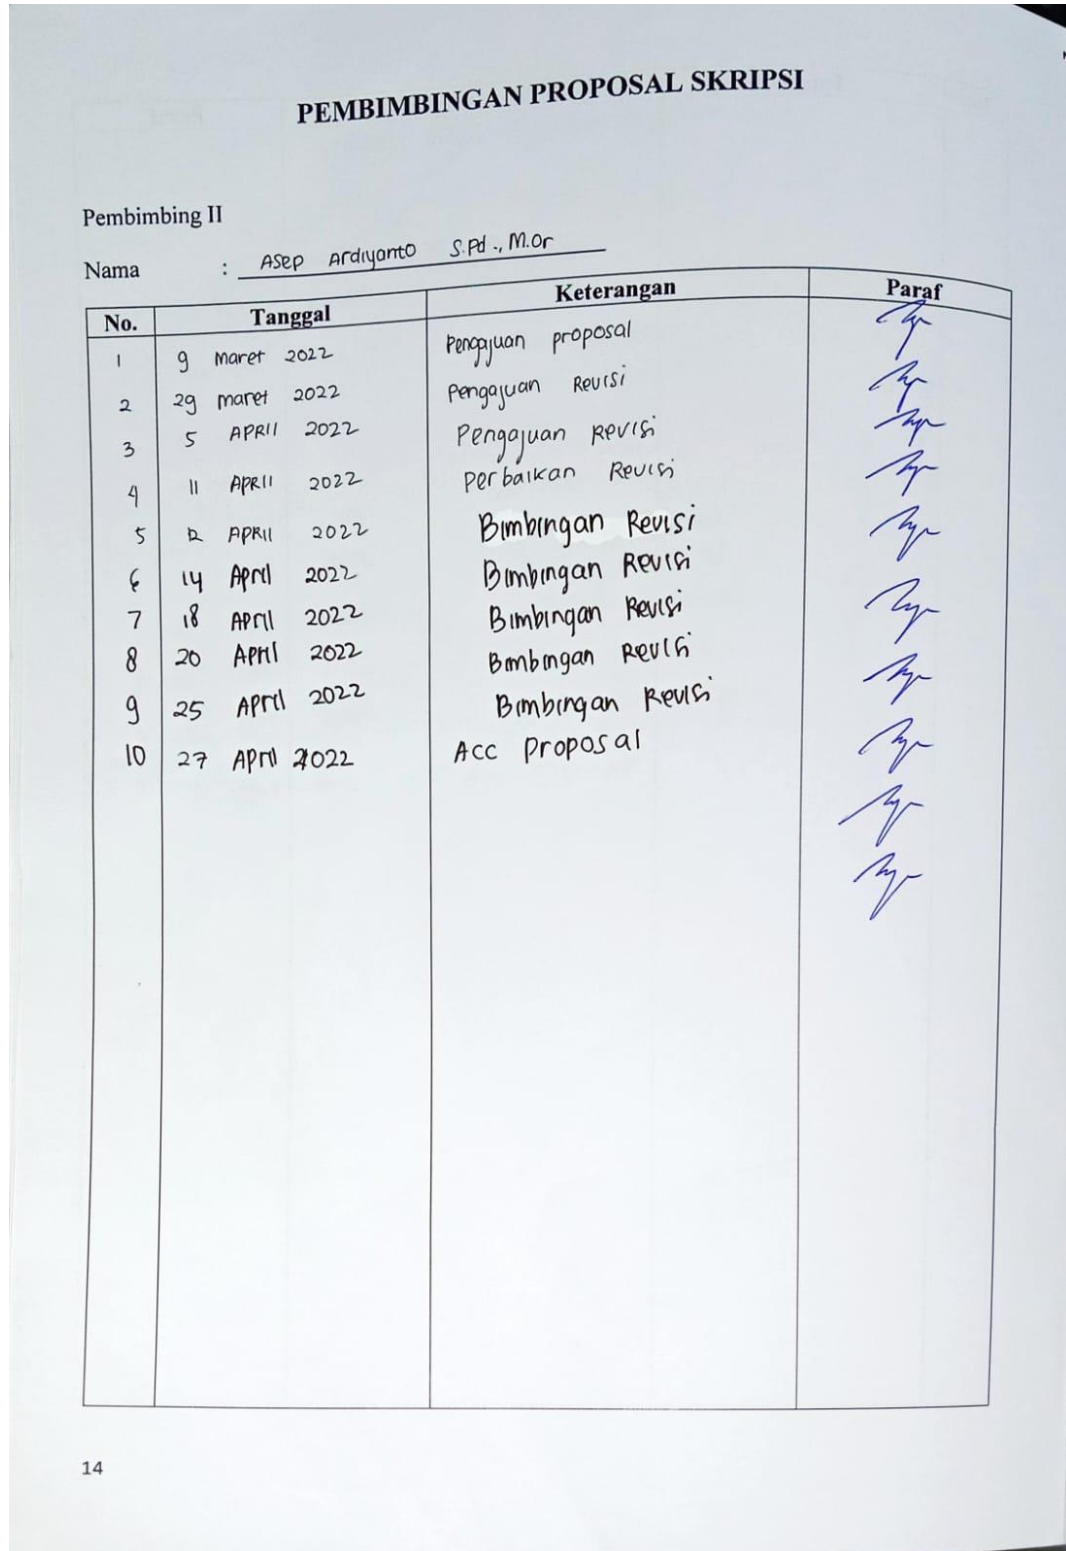 PEMBIMBINGAN PROPOSAL SKRIPSI
Pembimbing II
Nama : Asep Ardiyanto S.Pd., M.Or
No. Tanggal Keterangan Paraf
1 9 maret 2022 Pengajuan proposal
2 29 maret 2022 Pengajuan Revisi
3 5 APRIl 2022 Pengajuan Revisi
4 11 APRIl 2022 Perbaikan Revisi
5 12 APRIl 2022 Bimbingan Revisi
6 14 April 2022 Bimbingan Revisi
7 18 April 2022 Bimbingan Revisi
8 20 April 2022 Bimbingan Revisi
9 25 April 2022 Bimbingan Revisi
10 27 April 2022 Acc Proposal
14